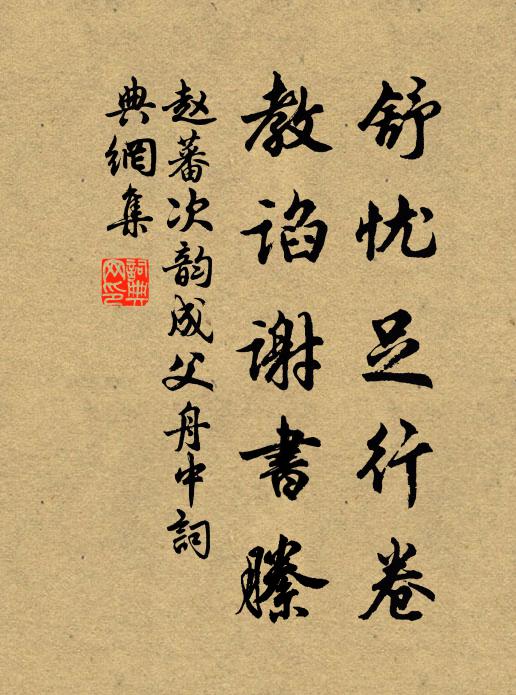 舒忧足行卷
教谄谢書縢
赵蕃次韵成父舟中詞
典網集
詞典網印